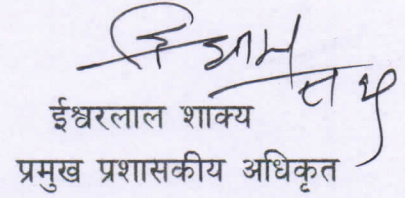 ईश्वरलाल शाक्य
प्रमुख प्रशासकीय अधिकृत